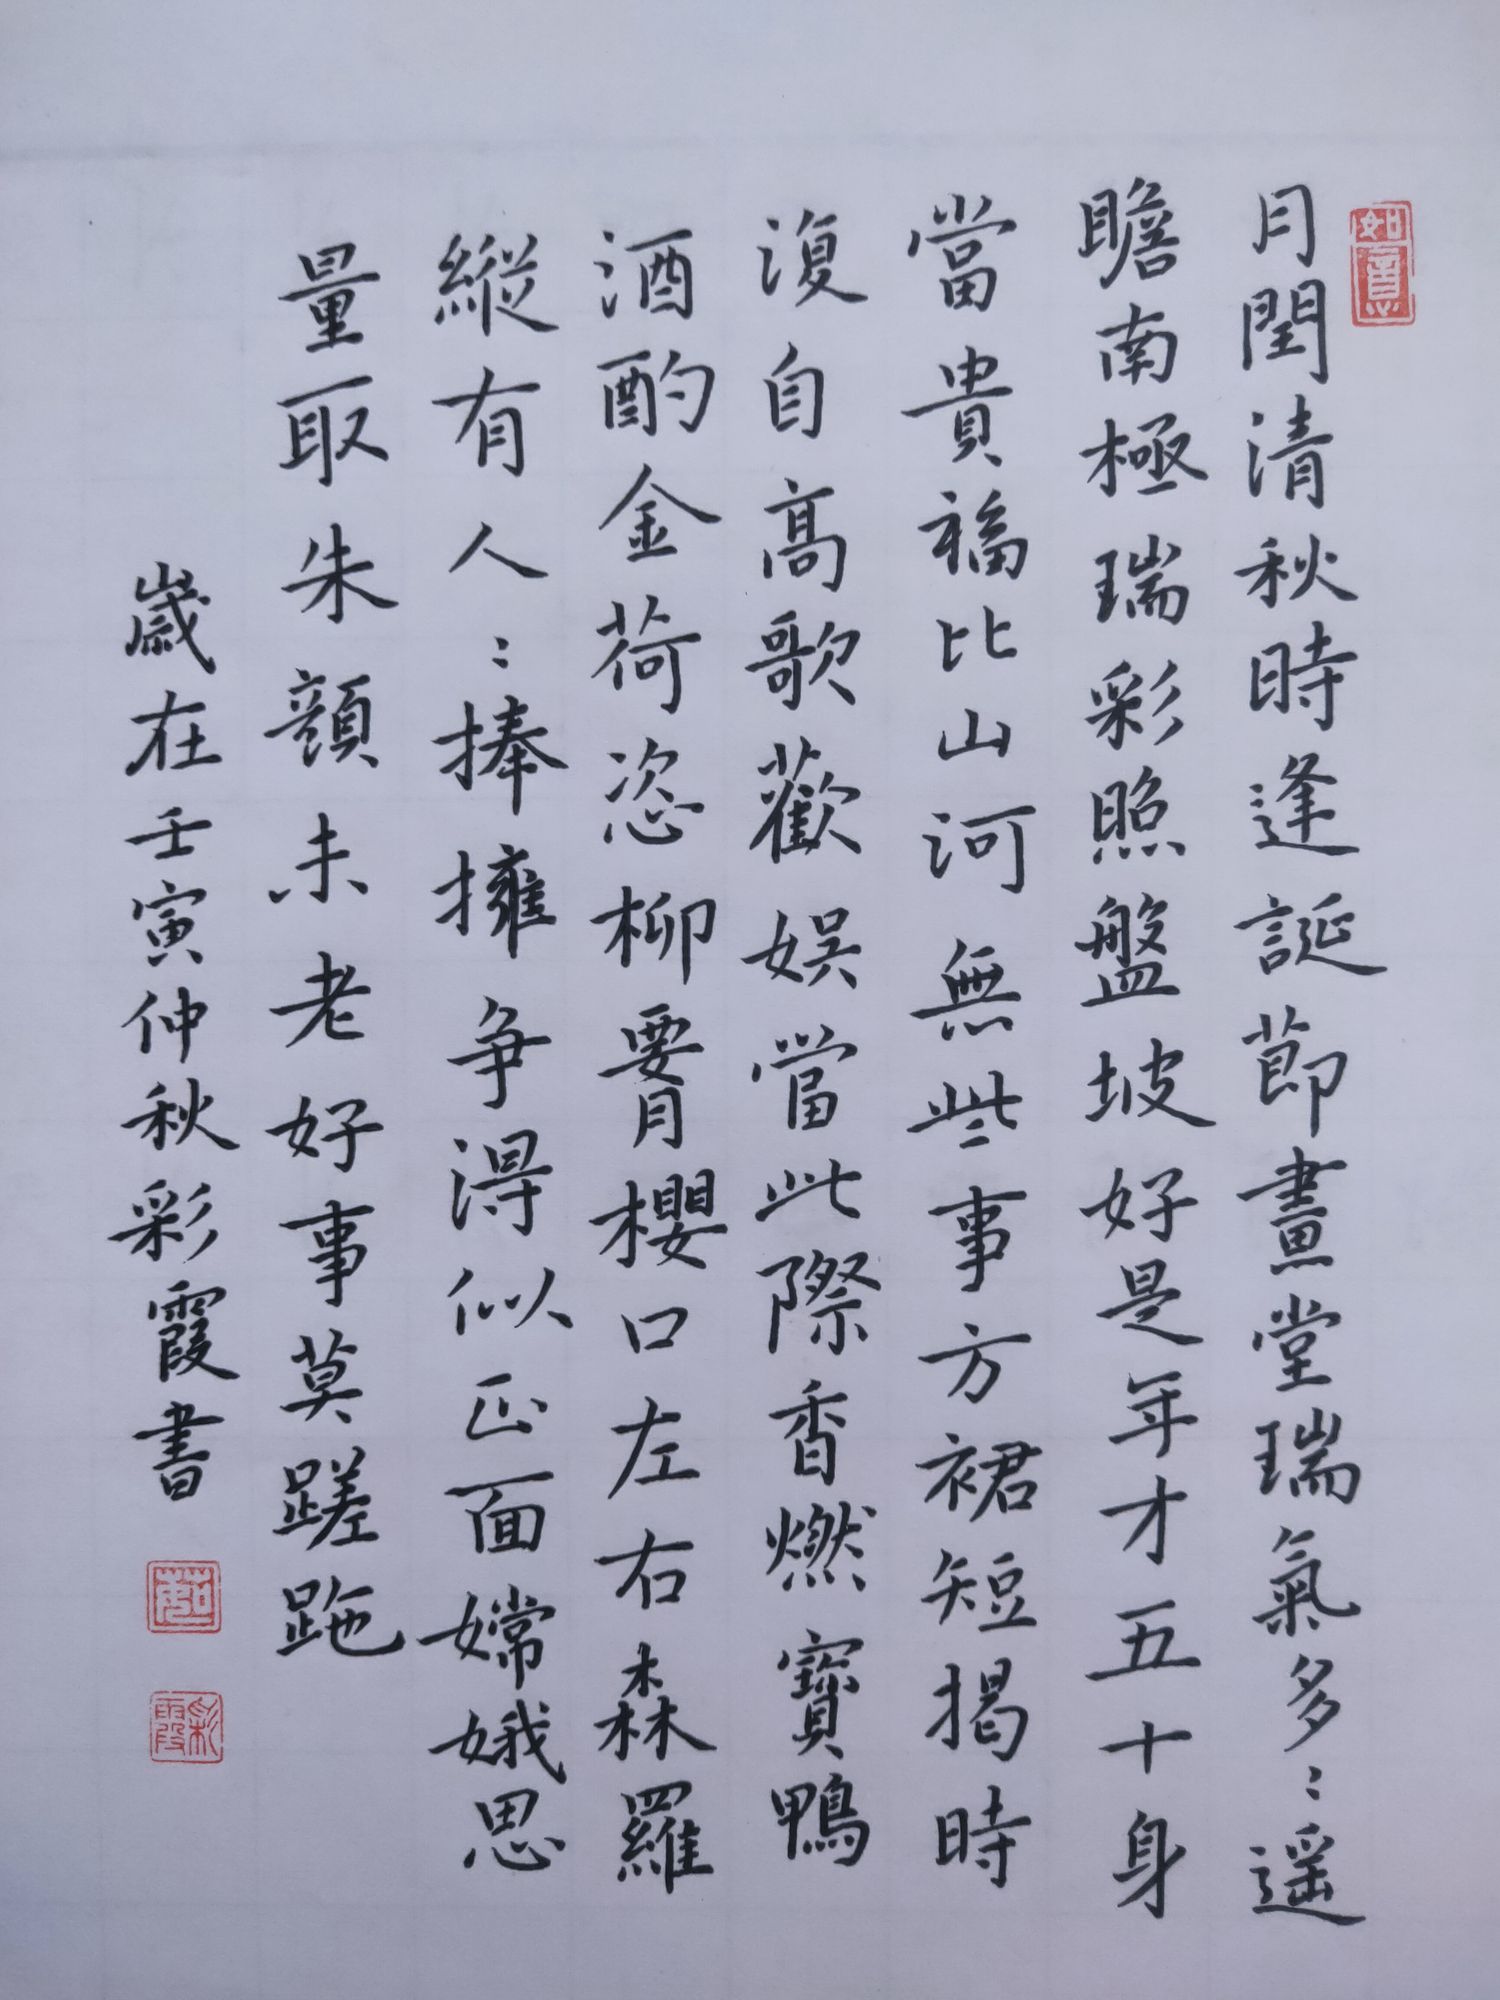 如意
月閏清秋時逢誕節畫堂瑞氣多〻遥
瞻南極瑞彩照盤坡好是年才五十身
當貴福比山河無些事方裙短揭時
復自高歌歡娱當此際香燃寶鴨
酒酌金荷恣柳要月櫻口左右森羅
縱有人〻捧擁争得似正面嫦娥思
量取朱顔未老好事莫蹉跎
歲在壬寅仲秋彩霞書
彩霞